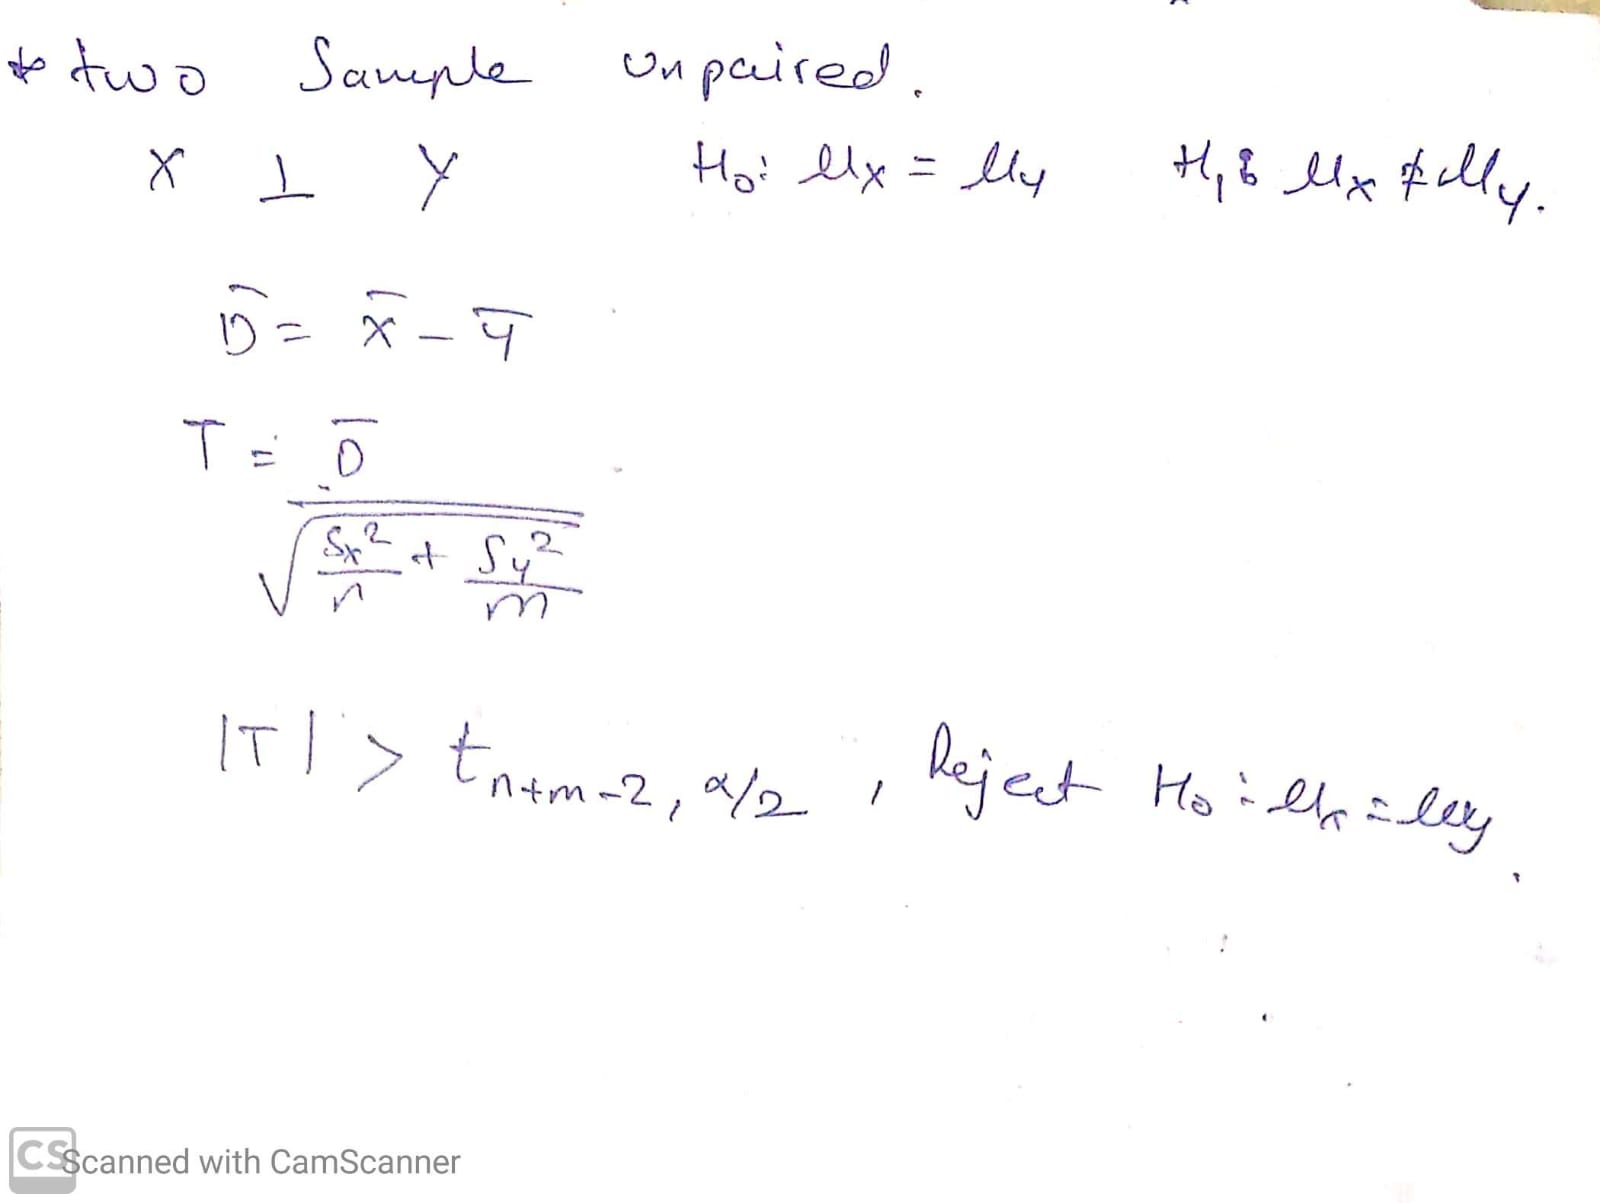 * two Sample unpaired.
X ⊥ Y H₀: μx = μy H₁: μx ≠ μy.
D̄ = x̄ - ȳ
T = D̄ / √(Sx²/n + Sy²/m)
|T| > t n+m-2, α/2 , Reject H₀: μx = μy.
CS Scanned with CamScanner